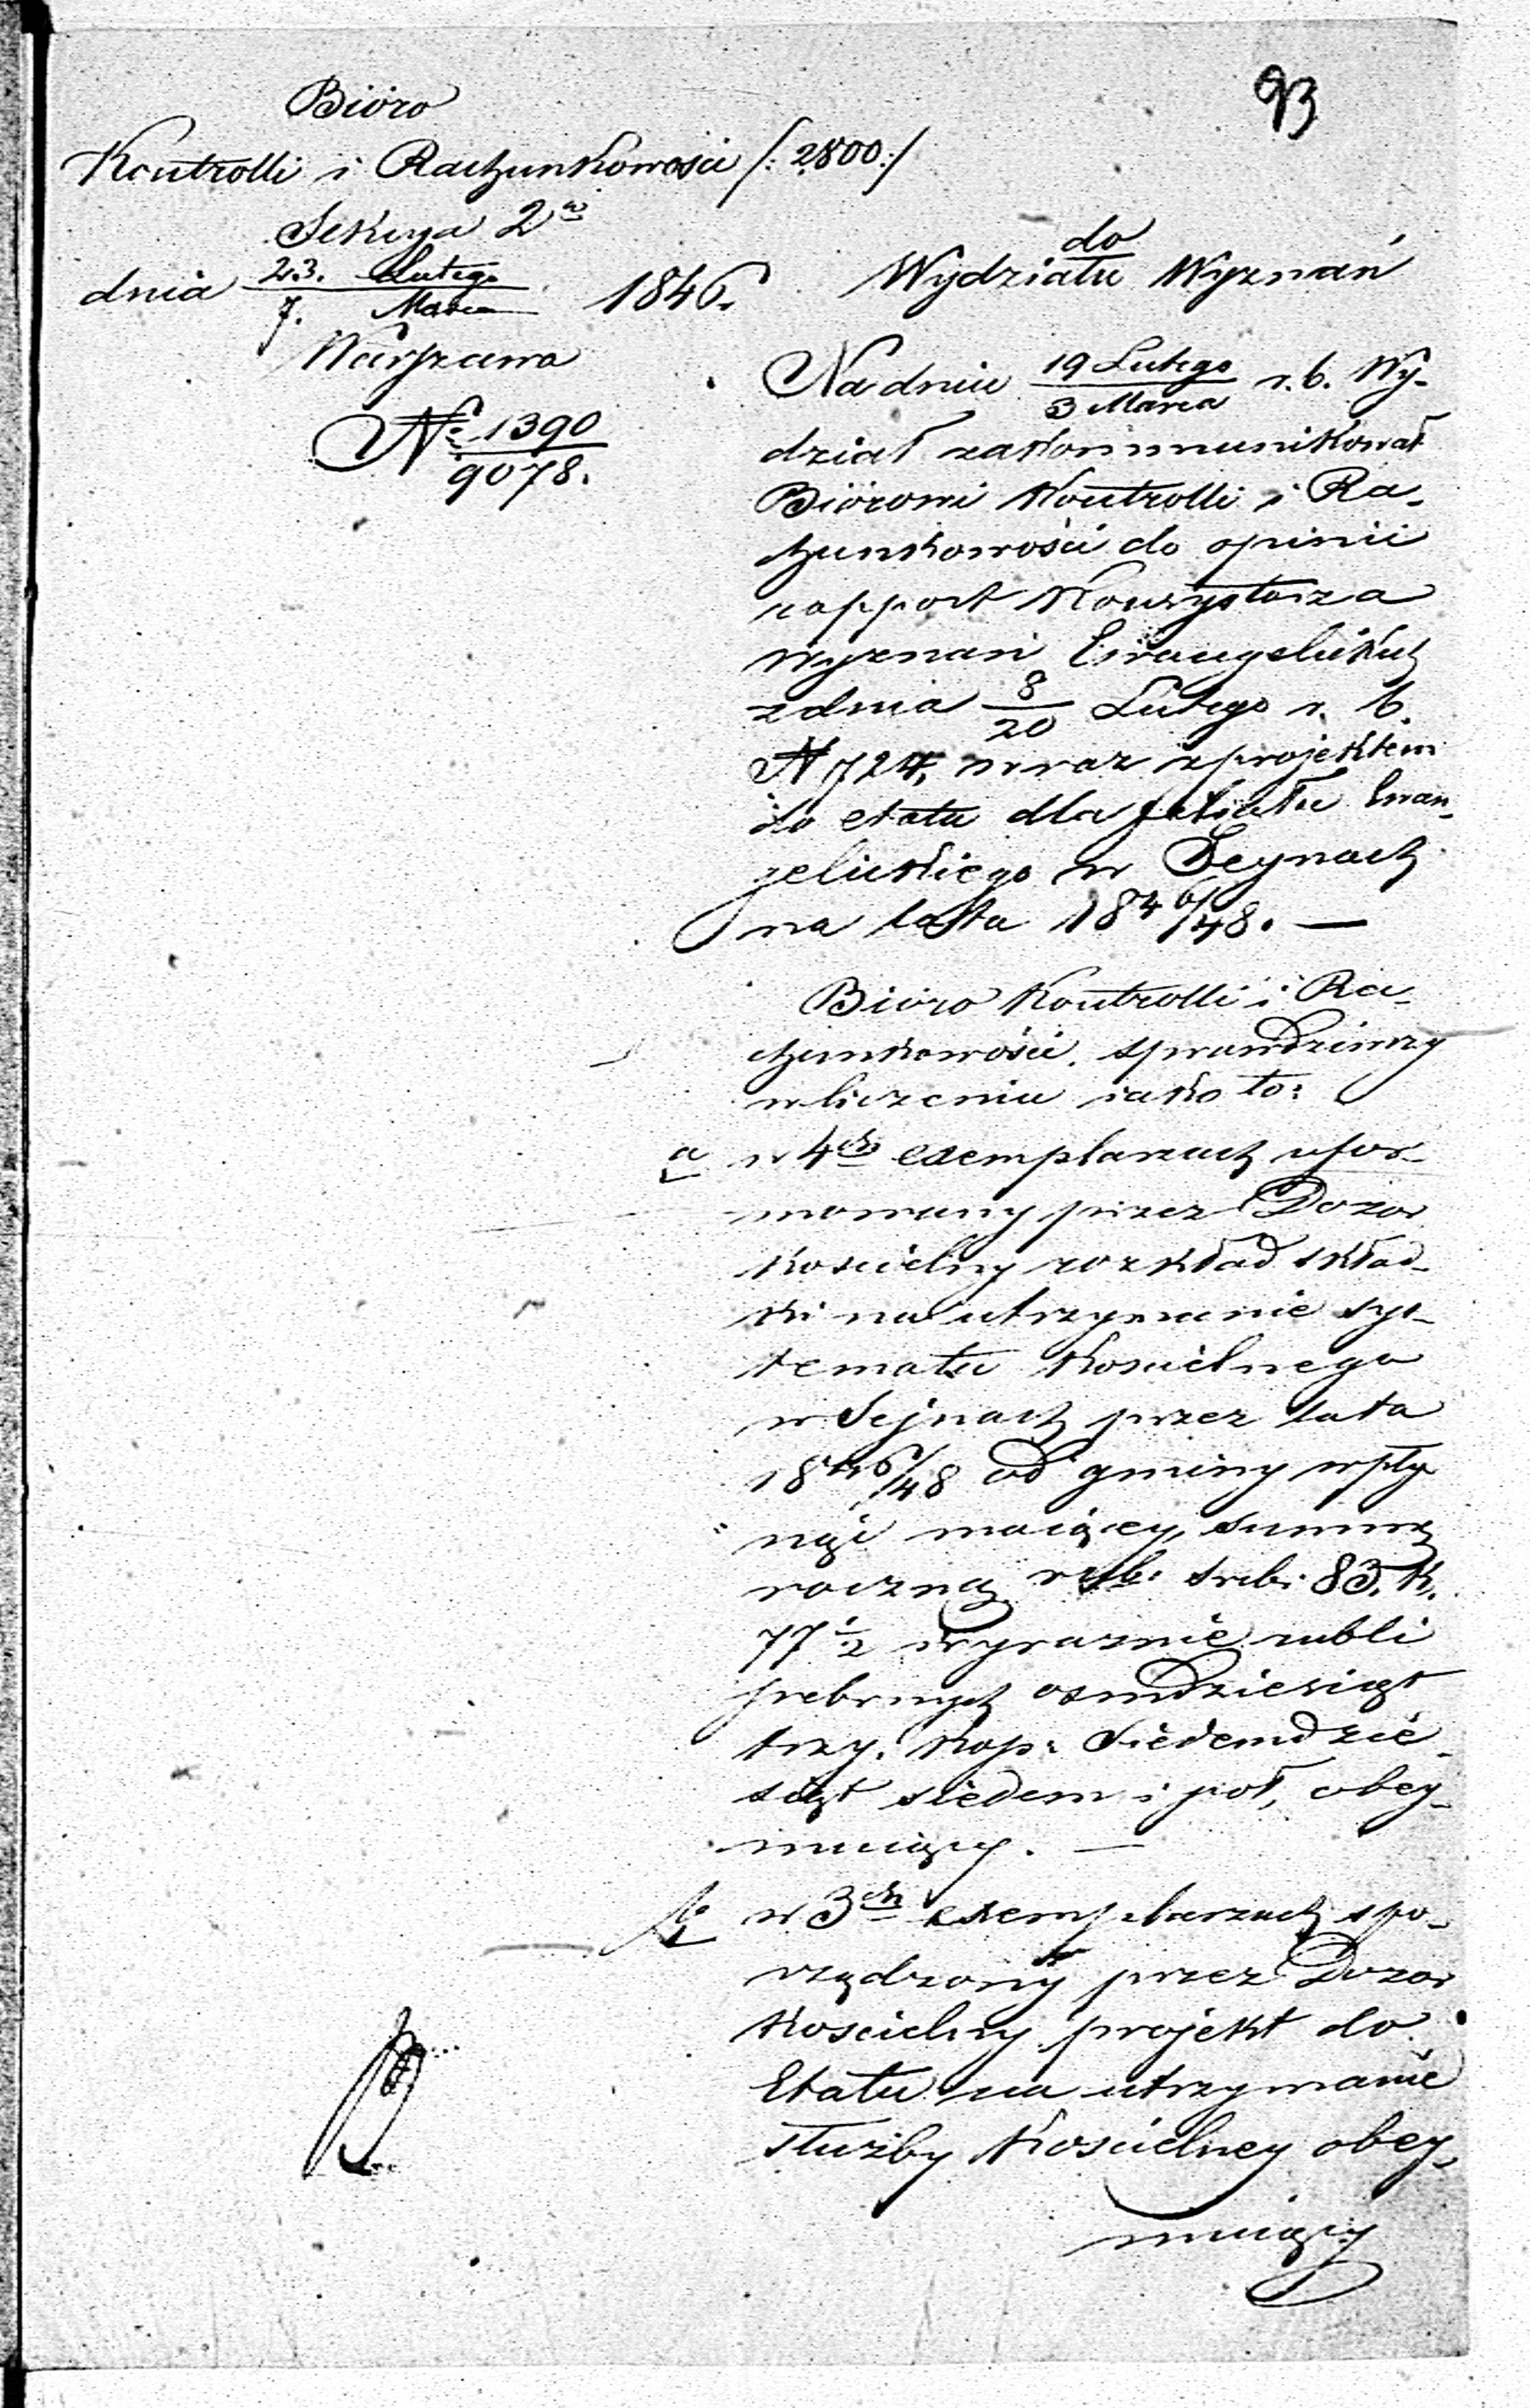 93
Bióro
Kontrolli i Rachunkowości /: 2800 :/
Sekcya 2ª
dnia 23. Lutego / 7. Marca 1846.
Warszawa
№ 1390 / 9078.
do
Wydziału Wyznań
Na dniu 19 Lutego / 3 Marca r. b. Wy-
dział zakommunikował
Biórowi Kontrolli i Ra-
chunkowości do opinii
rapport Konsystorza
wyznań Ewangelickich
z dnia 8/20 Lutego r. b.
N 724, wraz z projektem
do etatu dla filiału Ewan-
gelickiego w Seynach
na lata 1846/48. —
Bióro Kontrolli i Ra-
chunkowości, sprawdziwszy
w liczeniu iako to:
a w 4ch exemplarzach ufor-
mowany przez Dozor
Kościelny rozkład skład-
ki na utrzymanie sys-
tematu Kościelnego
w Sejnach przez lata
1846/48 od gminy wpły-
nąć maiącey, summę
roczną rub: srb: 83. k.
77½ wyraznie rubli
srebrnych osmdziesiąt
trzy. kop: siedemdzie-
siąt siedem i poł, obey-
muiący. —
b w 3ch exemplarzach spo-
rządzony przez Dozor
Kościelny projekt do
Etatu na utrzymanie
służby Kościelney obey-
muiący